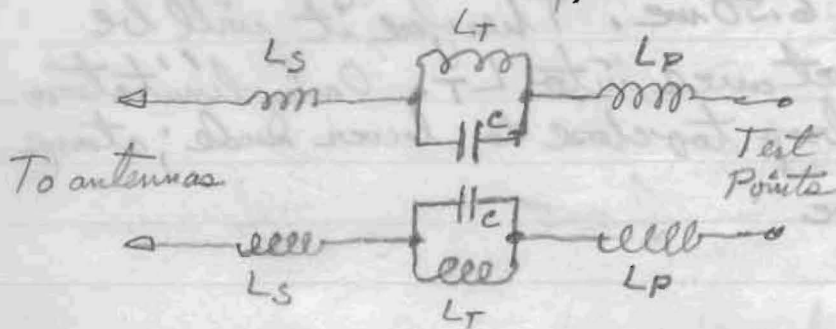 LT
LS
LP
C
To antennas
Test
Points
C
LS
LP
LT